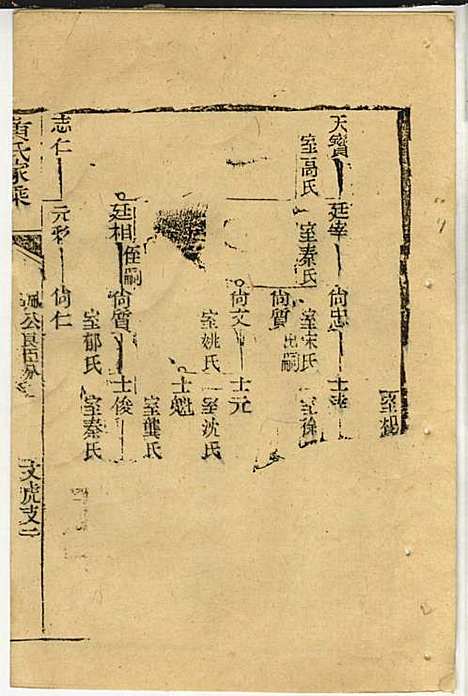 室楊
天寶 廷宰 尚忠 士
室高氏 室秦氏 室宋氏 室徐
尚質 出嗣
尚文 士元
室姚氏 室沈氏
士魁
室龔氏
廷相 侄嗣 尚質 士俊
室郁氏 室秦氏
志仁 元彩 尚仁
黄氏家乘 公良臣 文虎支二